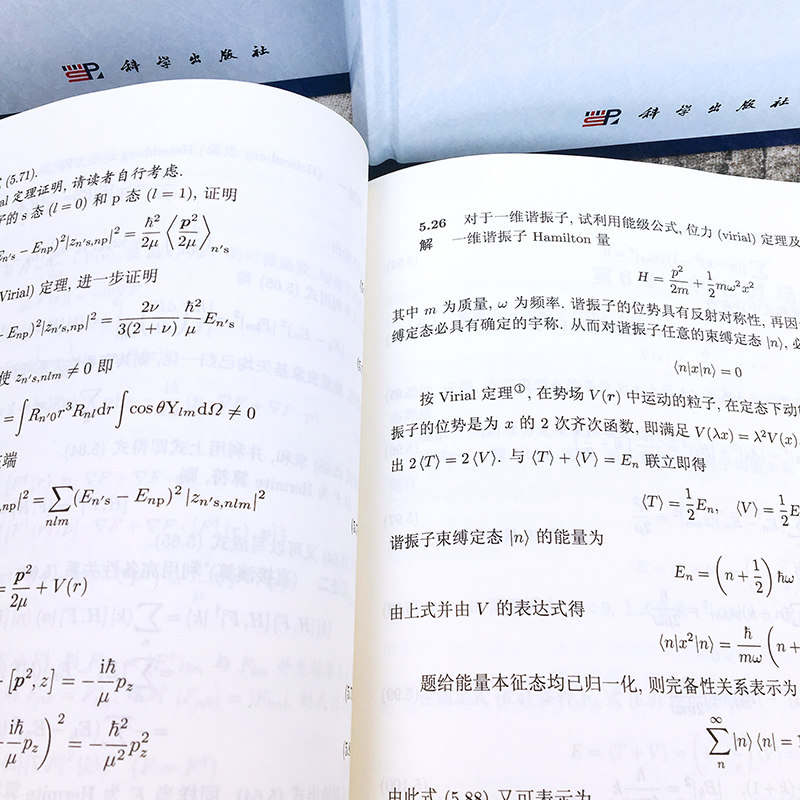 科学出版社
科学出版社
(5.71).
定理证明, 请读者自行考虑.
的 s 态 (l = 0) 和 p 态 (l = 1), 证明
− E_{np})^2|z_{n's,np}|^2 = \frac{ħ^2}{2μ} ⟨\frac{p^2}{2μ}⟩_{n's}
Virial) 定理, 进一步证明
− E_{np})^2|z_{n's,np}|^2 = \frac{2ν}{3(2 + ν)} \frac{ħ^2}{μ} E_{n's}
使 z_{n's,nlm} ≠ 0 即
= ∫ R_{n'0} r^3 R_{nl} dr ∫ cos θ Y_{lm} dΩ ≠ 0
端
|^2 = \sum_{nlm} (E_{n's} − E_{np})^2 |z_{n's,nlm}|^2
= \frac{p^2}{2μ} + V(r)
[p^2, z] = −\frac{iħ}{μ} p_z
\frac{iħ}{μ} p_z)^2 = −\frac{ħ^2}{μ^2} p_z^2
5.26 对于一维谐振子, 试利用能级公式, 位力 (virial) 定理及
解 一维谐振子 Hamilton 量
H = \frac{p^2}{2m} + \frac{1}{2} mω^2x^2
其中 m 为质量, ω 为频率. 谐振子的位势具有反射对称性, 再因
缚定态必具有确定的宇称. 从而对谐振子任意的束缚定态 |n⟩, 必
⟨n|x|n⟩ = 0
按 Virial 定理①, 在势场 V(r) 中运动的粒子, 在定态下动
振子的位势是为 x 的 2 次齐次函数, 即满足 V(λx) = λ^2V(x)
出 2⟨T⟩ = 2⟨V⟩. 与 ⟨T⟩ + ⟨V⟩ = E_n 联立即得
⟨T⟩ = \frac{1}{2}E_n, ⟨V⟩ = \frac{1}{2}E
谐振子束缚定态 |n⟩ 的能量为
E_n = (n + \frac{1}{2}) ħω
由上式并由 V 的表达式得
⟨n|x^2|n⟩ = \frac{ħ}{mω} (n +
题给能量本征态均已归一化, 则完备性关系表示为
\sum_n^∞ |n⟩ ⟨n| =
由此式 (5.88) 又可表示为